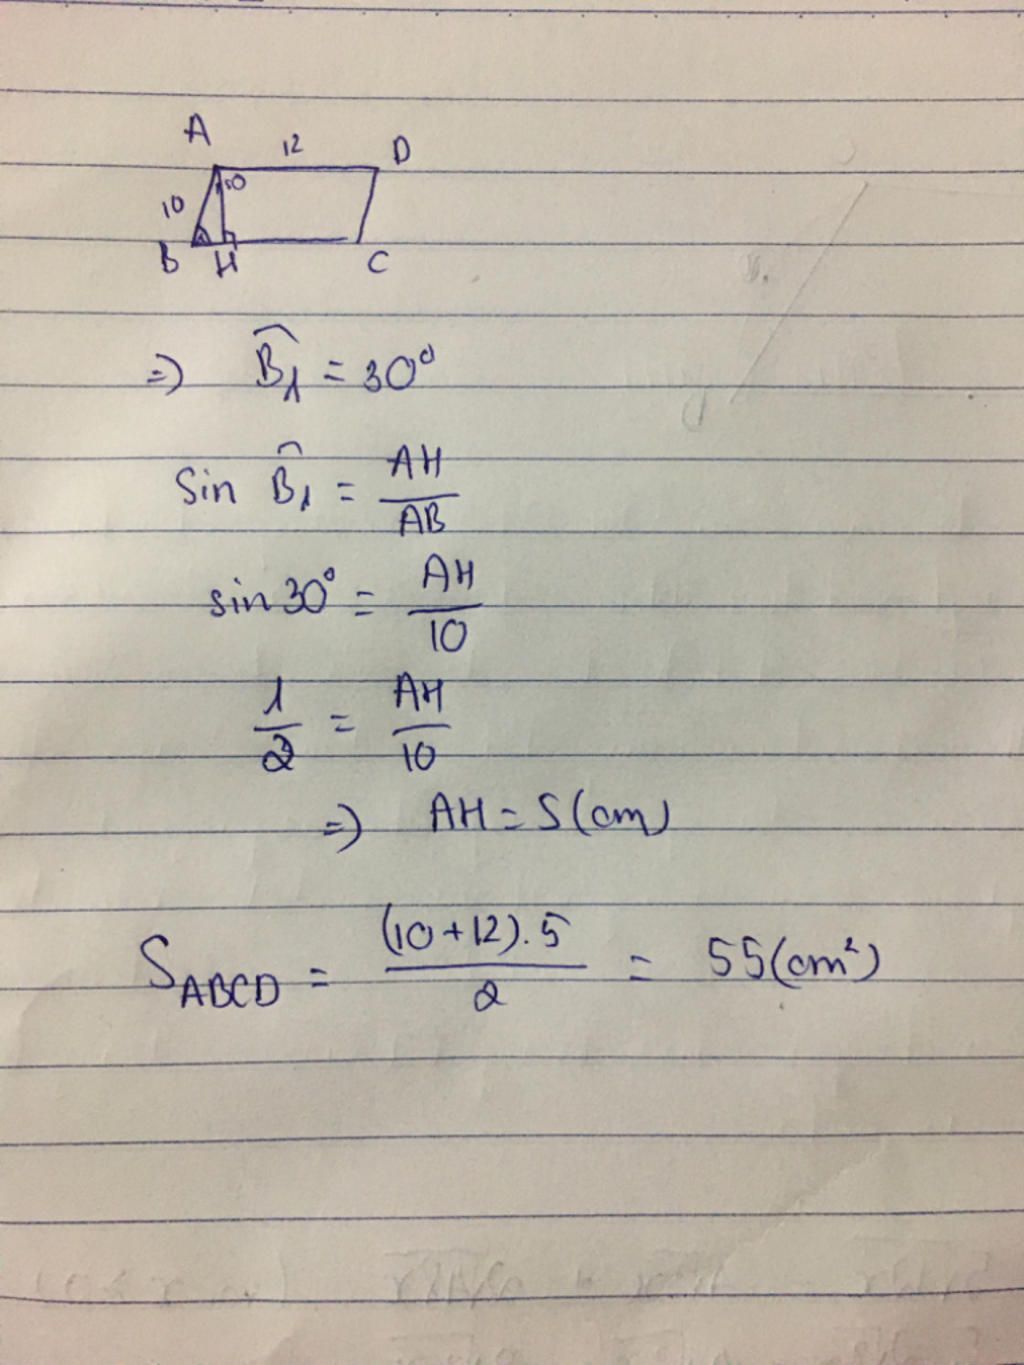 A 12 D
10
B H C
=> B̂₁ = 30°
Sin B̂₁ = AH/AB
sin30° = AH/10
1/2 = AH/10
=> AH = 5(cm)
S_ABCD = (10+12).5/2 = 55(cm²)